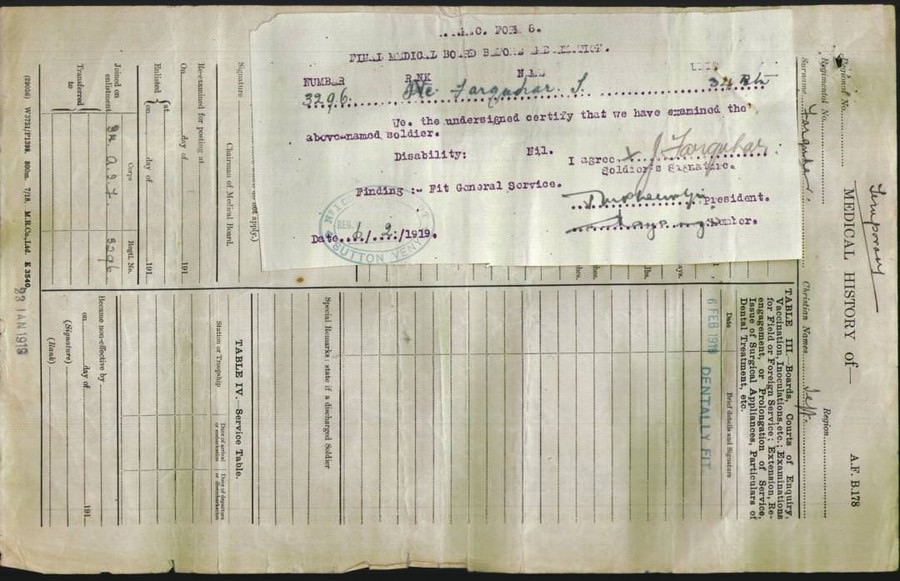 FINAL MEDICAL BOARD BEFORE
NUMBER RANK NAME UNIT
3296. Pte Farquhar J. 34 Bn
We, the undersigned certify that we have examined the
above-named soldier.
Disability: Nil.
I agree x J Farquhar
Soldier's Signature.
Finding :- Fit General Service.
President.
Date 6/2/1919.
SUTTON VENY
Temporary
MEDICAL HISTORY of—
A.F. B.178
Regimental No.
Surname Farquhar.
Christian Names Jeff.
Region
TABLE III.—Boards, Courts of Enquiry,
Vaccination, Inoculations, etc.; Examinations
for Field or Foreign Service; Extension, Re-
engagement, or Prolongation of Service,
Issue of Surgical Appliances, Particulars of
Dental Treatment, etc.
Date Brief details and Signature
6 FEB 1919 DENTALLY FIT
Special Remarks; state if a discharged Soldier
TABLE IV.—Service Table.
Station or Troopship
Date of arrival or embarkation
Date of departure or disembarkation
not apply.)
Signature
Chairman of Medical Board.
Re-examined for posting at
On day of 191
Enlisted { at
on day of 191
Corps Regtl. No.
Joined on enlistment 34 A.I.F. 3296
Transferred to
Became non-effective by
on day of 191
(Signature)
(Rank)
23 JAN 1919